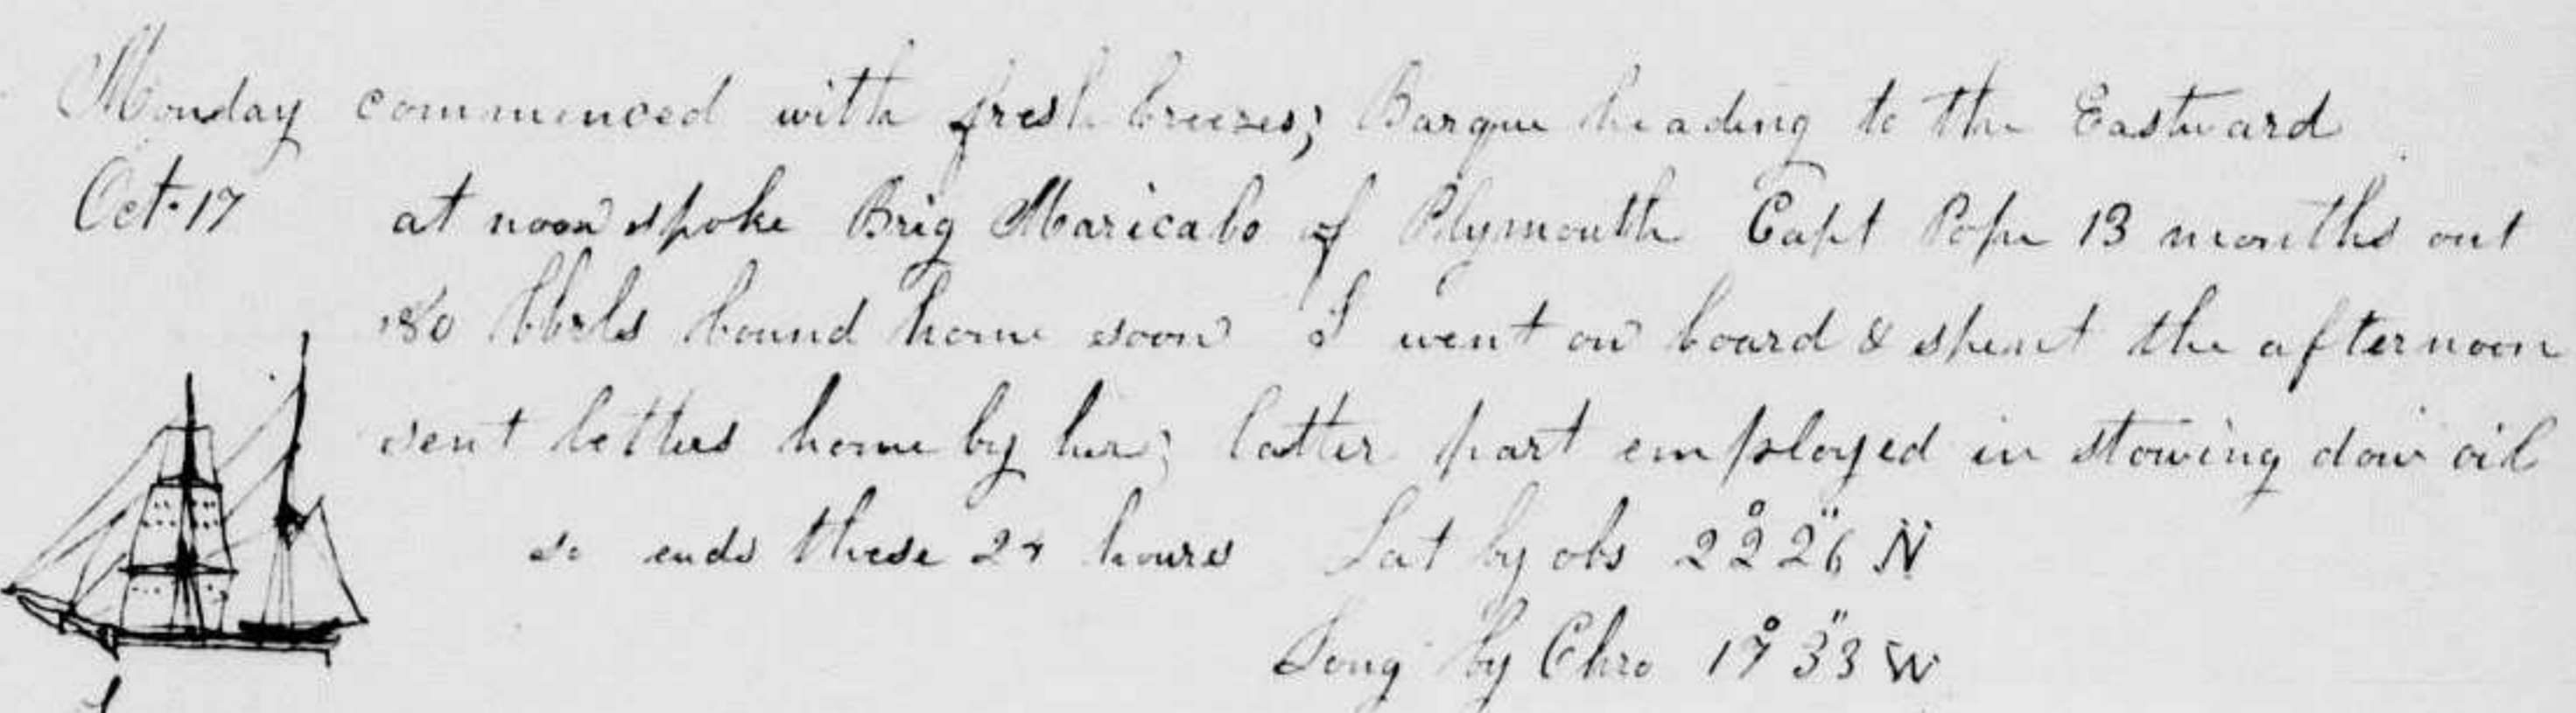 Monday commenced with fresh breezes; Barque heading to the Eastward
Oct. 17 at noon spoke Brig Maricabo of Plymouth Capt Pope 13 months out
180 bbrls bound home soon I went on board & spent the afternoon
sent letters home by her; latter part employed in stowing down oil
so ends these 24 hours Lat by obs 22° 26" N
Long by Chro 19° 33" W